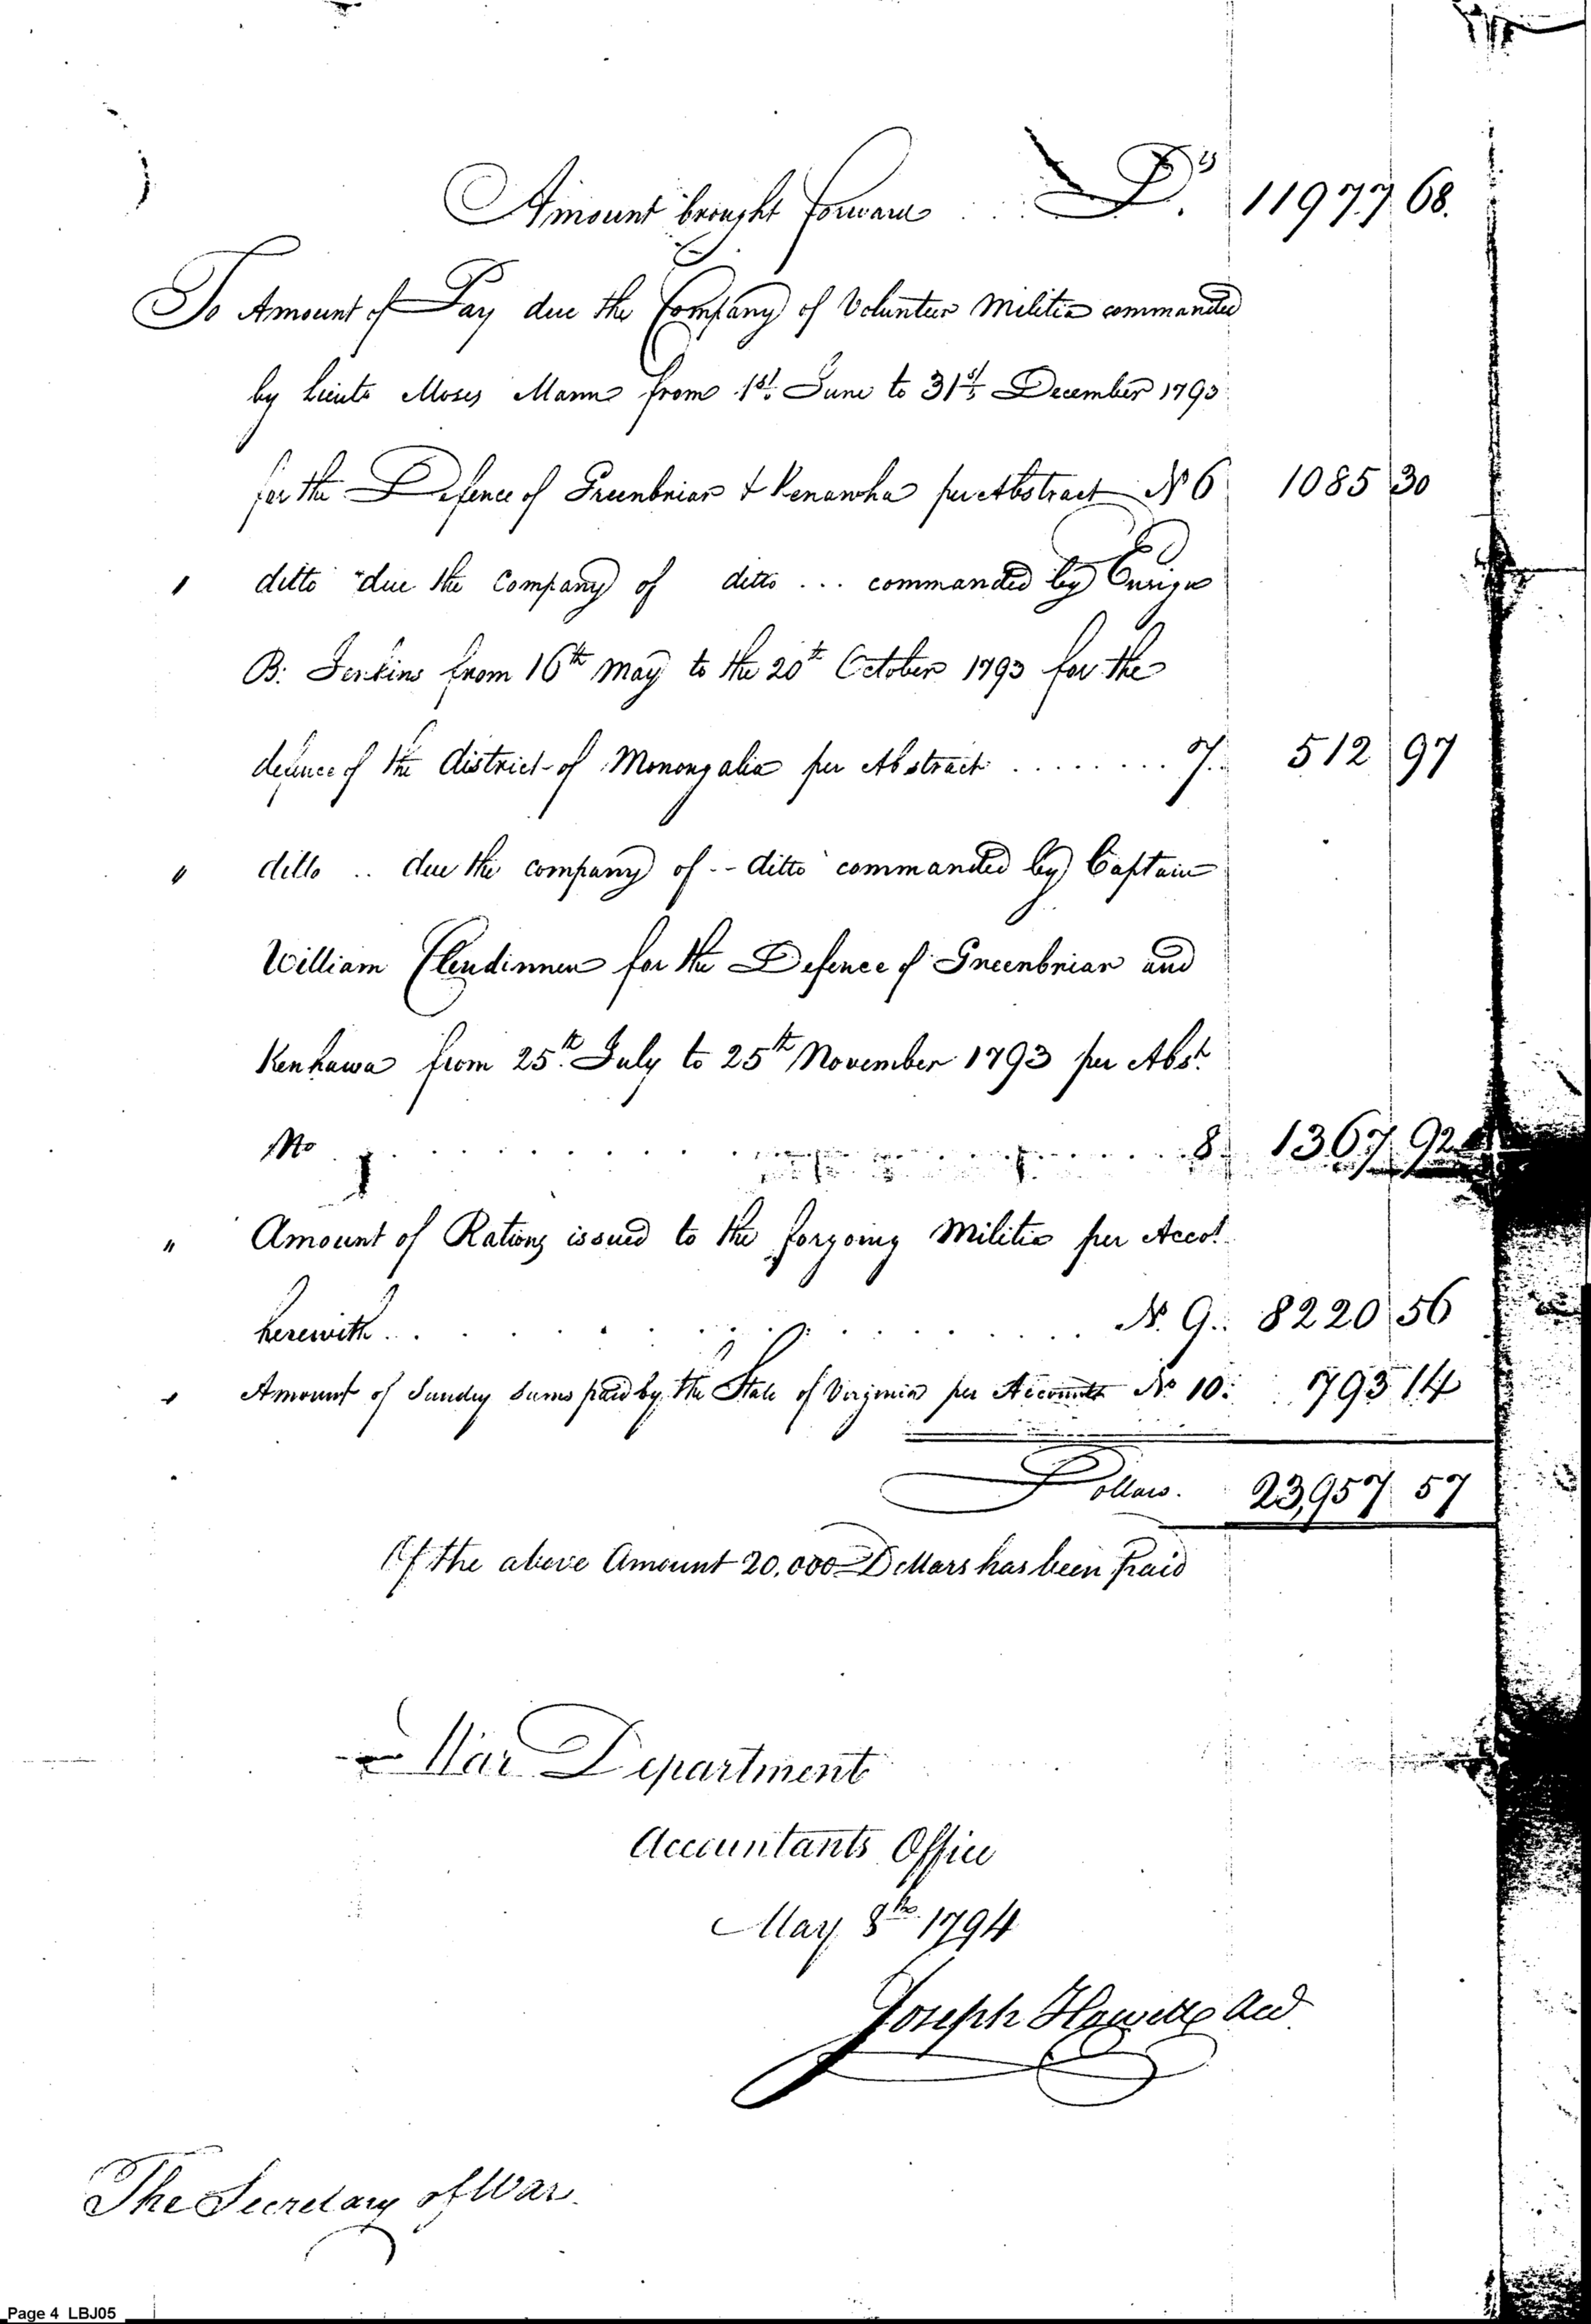 Amount brought forward . . . Drs. 11977 68.
To Amount of Pay due the Company of Volunteer Militia commanded
by Lieutt Moses Mann from 1st. June to 31st. December 1793
for the Defence of Greenbriar & Kenawha per Abstract No 6 1085 30
" ditto due the Company of ditto ... commanded by Ensign
B: Jenkins from 16th May to the 20th October 1793 for the
defence of the district of Monongalia per Abstract ........ 7. 512 97
" ditto .. due the company of -- ditto commanded by Captain
William Clendinnen for the Defence of Greenbriar and
Kenhawa from 25th. July to 25th November 1793 per Abst.
No . . . . . . . . . . . . . . . . 8. 1367 92
" Amount of Rations issued to the forgoing Militia per Accot.
herewith . . . . . . . . . . . . . . . No. 9.. 8220 56
" Amount of Sundry Sums paid by the State of Virginia per Accounts No 10: 793 14
Dollars. 23,957 57
Of the above Amount 20.000 Dollars has been paid
War Department
Accountants Office
May 8th. 1794
Joseph Howell Acct
The Secretary of War.
Page 4 LBJ05